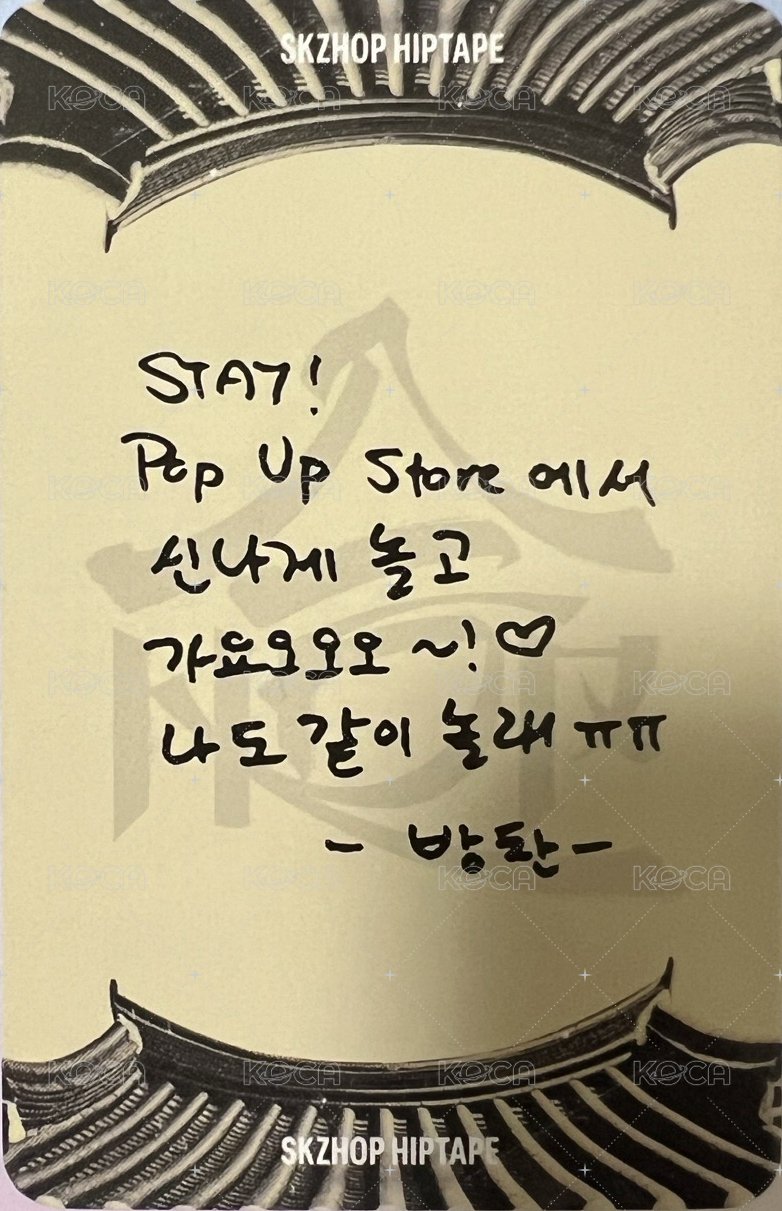 SKZHOP HIPTAPE
STAY!
Pop Up Store 에서
신나게 놀고
가요오오오 ~!♡
나도 같이 놀래 ㅠㅠ
- 방찬 -
SKZHOP HIPTAPE